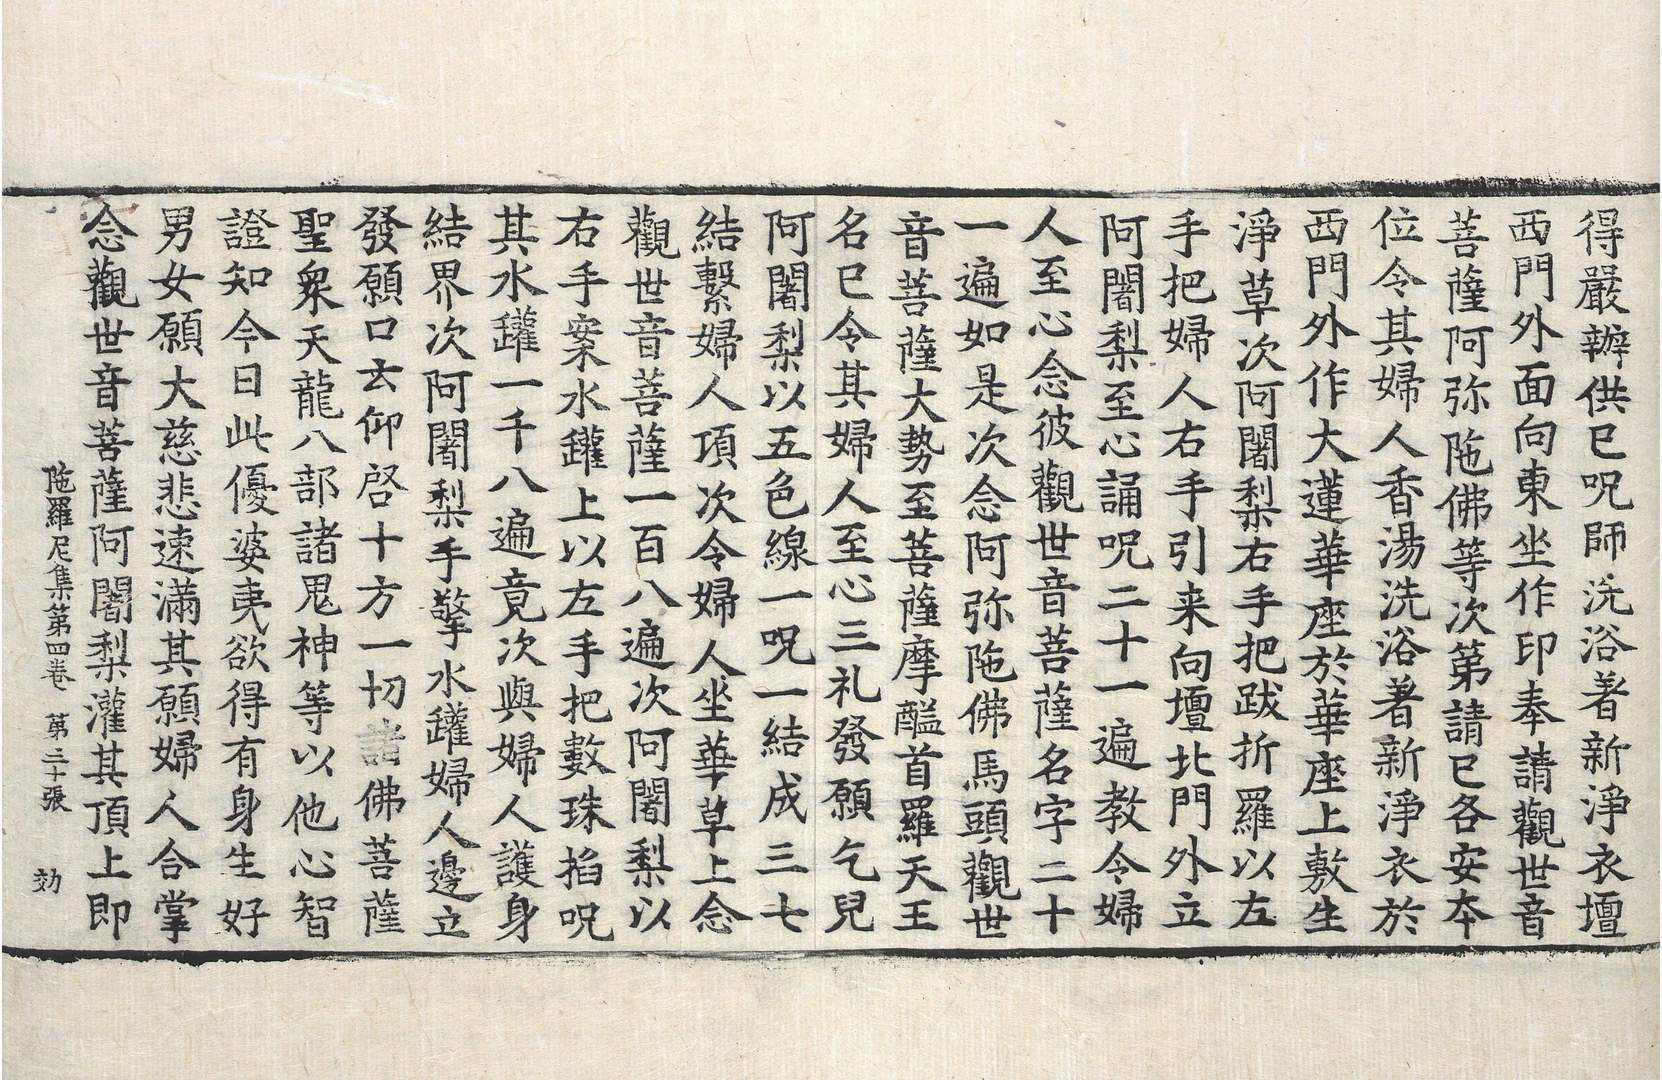 得嚴辦供已呪師洗浴著新淨衣壇
西門外面向東坐作印奉請觀世音
菩薩阿弥陁佛等次第請已各安本
位令其婦人香湯洗浴著新淨衣於
西門外作大蓮華座於華座上敷生
淨草次阿闍梨右手把跋折羅以左
手把婦人右手引来向壇北門外立
阿闍梨至心誦呪二十一遍教令婦
人至心念彼觀世音菩薩名字二十
一遍如是次念阿弥陁佛馬頭觀世
音菩薩大勢至菩薩摩醯首羅天王
名已令其婦人至心三礼發願乞兒
阿闍梨以五色線一呪一結成三七
結繫婦人項次令婦人坐華草上念
觀世音菩薩一百八遍次阿闍梨以
右手案水罐上以左手把數珠掐呪
其水罐一千八遍竟次與婦人護身
結界次阿闍梨手擎水罐婦人邊立
發願口云仰啓十方一切諸佛菩薩
聖衆天龍八部諸鬼神等以他心智
證知今日此優婆夷欲得有身生好
男女願大慈悲速滿其願婦人合掌
念觀世音菩薩阿闍梨灌其頂上即
陁羅尼集第四卷 第二十張 効